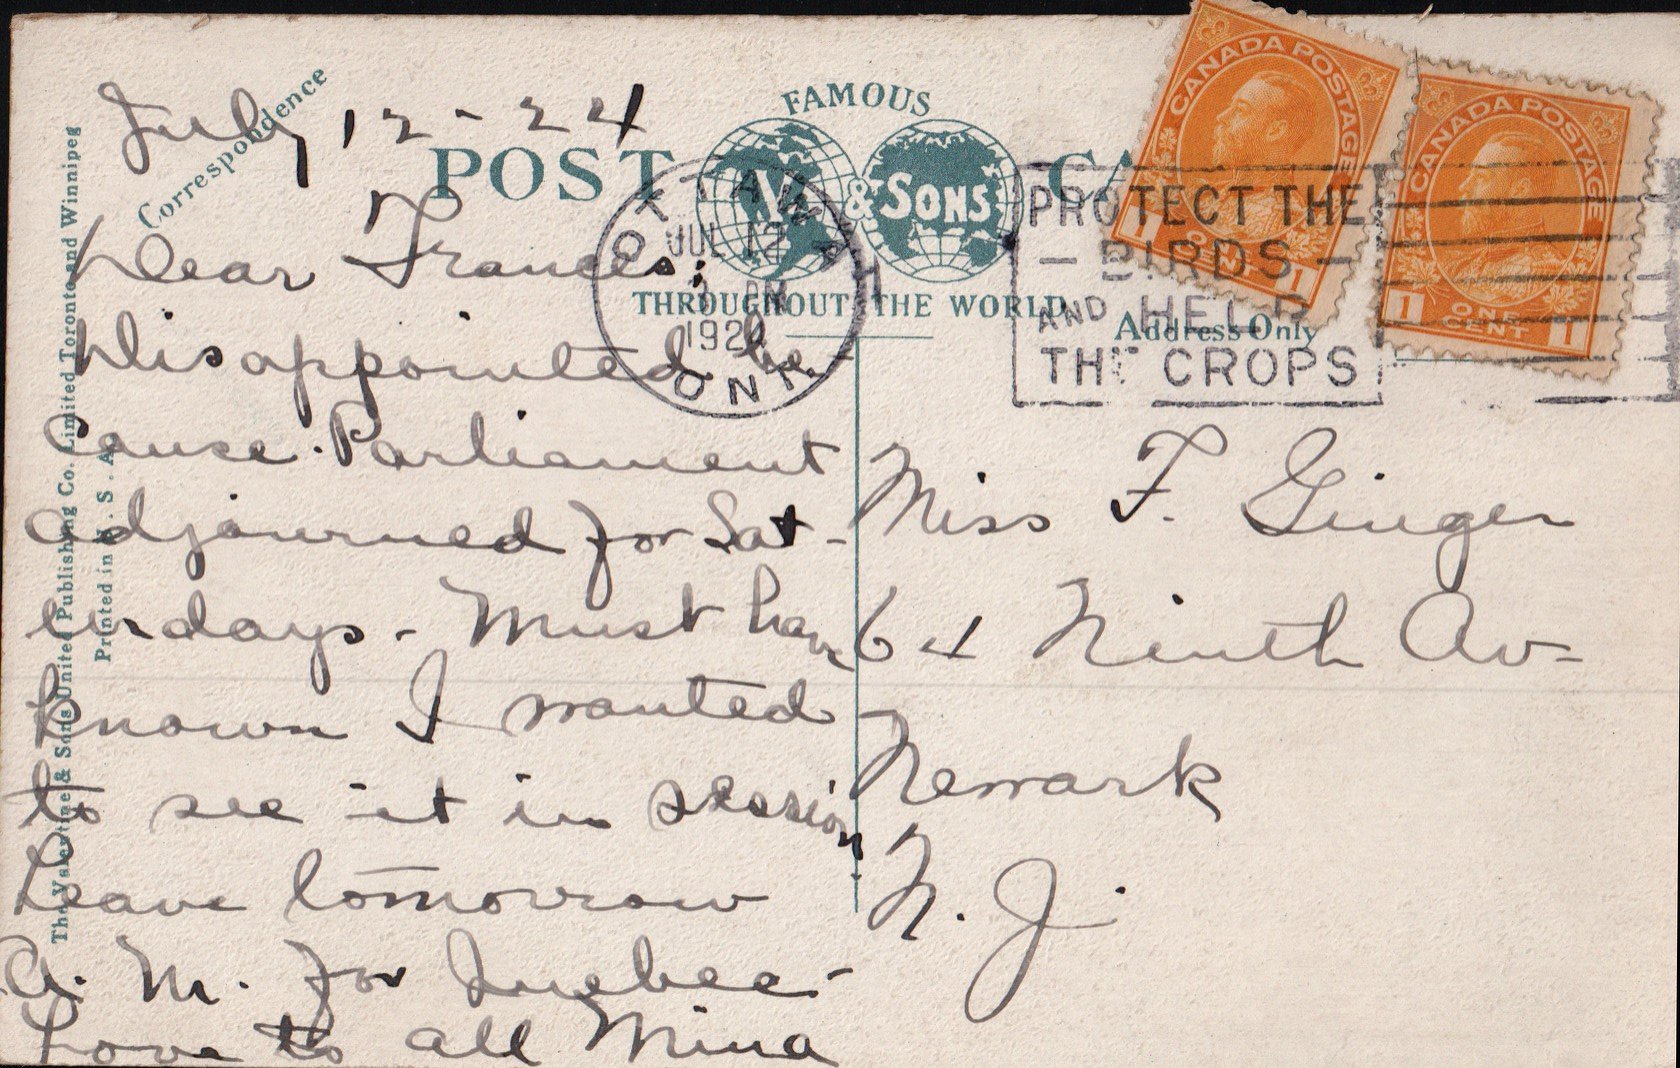 July 12-24
Correspondence
POST
FAMOUS
V. & SONS
THROUGHOUT THE WORLD
CA
Address Only
CANADA POSTAGE
1 1
CANADA POSTAGE
1 ONE CENT 1
OTTAWA
JUL 12
PM
192
ONT.
PROTECT THE
- BIRDS -
AND HELP
THE CROPS
Dear Frances;
Disappointed be
cause Parliament
adjourned for Sat-
urdays - Must have
known I wanted
to see it in session
Leave tomorrow
A. M. for Quebec -
Love to all Mina
Miss F. Ginger
64 Ninth Av-
Newark
N. J.
The Valentine & Sons United Publishing Co. Limited Toronto and Winnipeg
Printed in U. S. A.